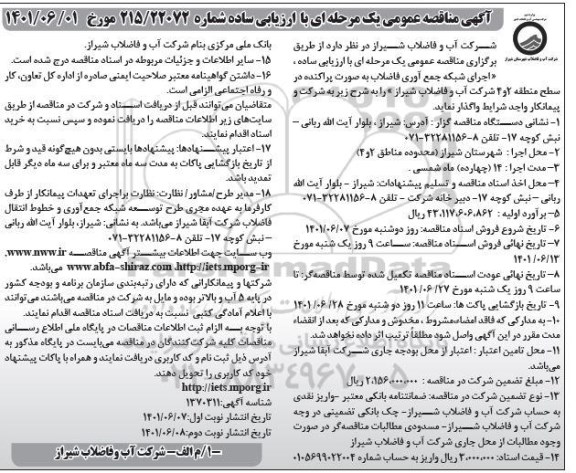 آگهی مناقصه عمومی یک مرحله ای با ارزیابی ساده شماره ۲۱۵/۲۲۰۷۲ مورخ ۱۴۰۱/۰۶/۰۱
شرکت آب و فاضلاب شیراز در نظر دارد از طریق
برگزاری مناقصه عمومی یک مرحله ای با ارزیابی ساده ،
«اجرای شبکه جمع آوری فاضلاب به صورت پراکنده در
سطح منطقه ۲و۴ شرکت آب و فاضلاب شیراز » را به شرح زیر به شرکت و
پیمانکار واجد شرایط واگذار نماید.
۱- نشانی دستگاه مناقصه گزار : آدرس: شیراز ، بلوار آیت الله ربانی –
نبش کوچه ۱۷- تلفن ۸-۳۲۲۸۱۱۵۶-۰۷۱
۲- محل اجرا : شهرستان شیراز (محدوده مناطق ۲و۴)
۳- مدت اجرا: ۱۴ (چهارده) ماه شمسی .
۴- محل اخذ اسناد مناقصه و تسلیم پیشنهادات: شیراز - بلوار آیت الله
ربانی – نبش کوچه ۱۷- دبیر خانه شرکت - تلفن ۸-۳۲۲۸۱۱۵۶-۰۷۱
۵- برآورد اولیه : ۴۳،۱۱۷،۶۰۶،۸۶۲ ریال
۶- تاریخ شروع فروش اسناد مناقصه: روز دوشنبه مورخ ۱۴۰۱/۰۶/۰۷
۷- تاریخ نهائی فروش اسناد مناقصه: ساعت ۹ روز یک شنبه مورخ
۱۴۰۱/۰۶/۱۳
۸- تاریخ نهائی عودت اسناد مناقصه تکمیل شده توسط مناقصه‌گر: تا
ساعت ۹ روز یک شنبه مورخ ۱۴۰۱/۰۶/۲۷
۹- تاریخ بازگشایی پاکت ها: ساعت ۱۱ روز دو شنبه مورخ ۱۴۰۱/۰۶/۲۸
۱۰- به مدارکی که فاقد امضاء،مشروط ، مخدوش و مدارکی که بعد از انقضاء
مدت مقرر در این آگهی واصل شود مطلقاً ترتیب اثر داده نخواهد شد.
۱۱- محل تامین اعتبار : اعتبار از محل بودجه جاری شرکت آبفا شیراز
می‌باشد.
۱۲- مبلغ تضمین شرکت در مناقصه : ۲،۱۵۶،۰۰۰،۰۰۰ ریال
۱۳- نوع تضمین شرکت در مناقصه: ضمانتنامه بانکی معتبر -واریز نقدی
به حساب شرکت آب و فاضلاب شیراز- چک بانکی تضمینی در وجه
شرکت آب و فاضلاب شیراز- مسدودی مطالبات مناقصه‌گر در صورت
وجود مطالبات از محل جاری شرکت آب و فاضلاب شیراز
۱۴- قیمت اسناد: ۳،۰۰۰،۰۰۰ ریال واریز به حساب شماره ۰۱۰۵۶۹۹۰۲۲۰۰۴
بانک ملی مرکزی بنام شرکت آب و فاضلاب شیراز.
۱۵- سایر اطلاعات و جزئیات مربوطه در اسناد مناقصه درج شده است.
۱۶- داشتن گواهینامه معتبر صلاحیت ایمنی صادره از اداره کل تعاون، کار
و رفاه اجتماعی الزامی است.
متقاضیان می‌توانند قبل از دریافت اسناد و شرکت در مناقصه از طریق
سایت‌های زیر اطلاعات مناقصه را دریافت نموده و سپس نسبت به خرید
اسناد اقدام نمایند.
۱۷- اعتبار پیشنهادها: پیشنهادها بایستی بدون هیچ‌گونه قید و شرط
از تاریخ بازگشایی پاکات به مدت سه ماه معتبر و برای سه ماه دیگر قابل
تمدید باشد.
۱۸- مدیر طرح/مشاور/ نظارت: نظارت براجرای تعهدات پیمانکار از طرف
کارفرما به عهده مجری طرح توسعه شبکه جمع‌آوری و خطوط انتقال
فاضلاب شرکت آبفا شیراز می‌باشد. به نشانی: شیراز، بلوار آیت الله ربانی
–نبش کوچه ۱۷- تلفن ۸-۳۲۲۸۱۱۵۶-۰۷۱
وب سایت جهت اطلاعات بیشتر آگهی مناقصه www.nww.ir،
www.abfa-shiraz.com ،http://iets.mporg.ir می‌باشد.
شرکتها و پیمانکارانی که دارای رتبه‌بندی سازمان برنامه و بودجه کشور
در پایه ۵ آب و بالاتر بوده و مایل به شرکت در مناقصه می‌باشند می‌توانند
با اعلام آمادگی کتبی نسبت به دریافت اسناد مناقصه اقدام نمایند.
با توجه به الزام ثبت اطلاعات مناقصات در پایگاه ملی اطلاع رسانی
مناقصات کلیه شرکت‌کنندگان در مناقصه می‌بایست در پایگاه مذکور به
آدرس ذیل ثبت نام و کد کاربری دریافت نمایند و همراه با پاکات پیشنهاد
خود کد کاربری را تحویل دهند.
http://iets.mporg.ir
شناسه آگهی: ۱۳۷۰۳۱۱
تاریخ انتشار نوبت اول: ۱۴۰۱/۰۶/۰۷
تاریخ انتشار نوبت دوم: ۱۴۰۱/۰۶/۰۸
۱۰/م الف– شرکت آب و فاضلاب شیراز